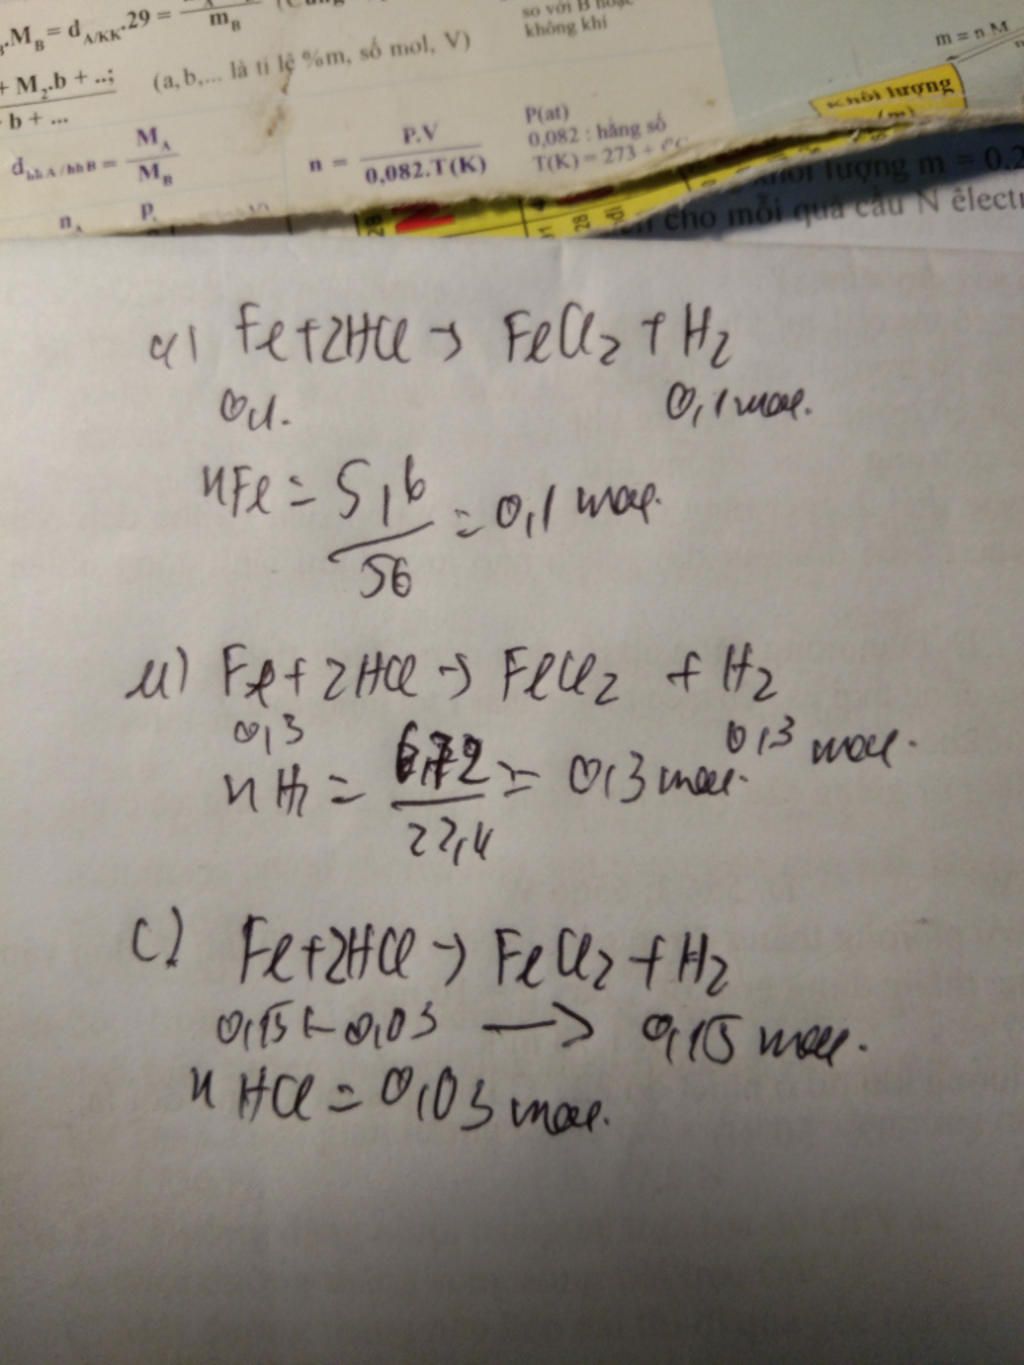 .M_B = d_A/KK.29 =
m_B
so với B hoặc
không khí
m = n M
+ M₂.b + ..;
b + ...
(a,b,... là tỉ lệ %m, số mol, V)
Khối lượng
(m)
d_hhA/hhB = M_A / M_B
n = P.V / 0,082.T(K)
P(at)
0,082 : hằng số
T(K) = 273 +
khối lượng m = 0.2
cho mỗi quả cầu N êlectr
28
a) Fe+2HCl → FeCl₂ + H₂
0,1. 0,1 mol.
nFe = 5,6/56 = 0,1 mol.
Fe + 2HCl → FeCl₂ + H₂
0,3 0,3 mol.
nH₂ = 6,72/22,4 = 0,3 mol.
c) Fe+2HCl → FeCl₂ + H₂
0,15 ← 0,03 → 0,15 mol.
nHCl = 0,03 mol.